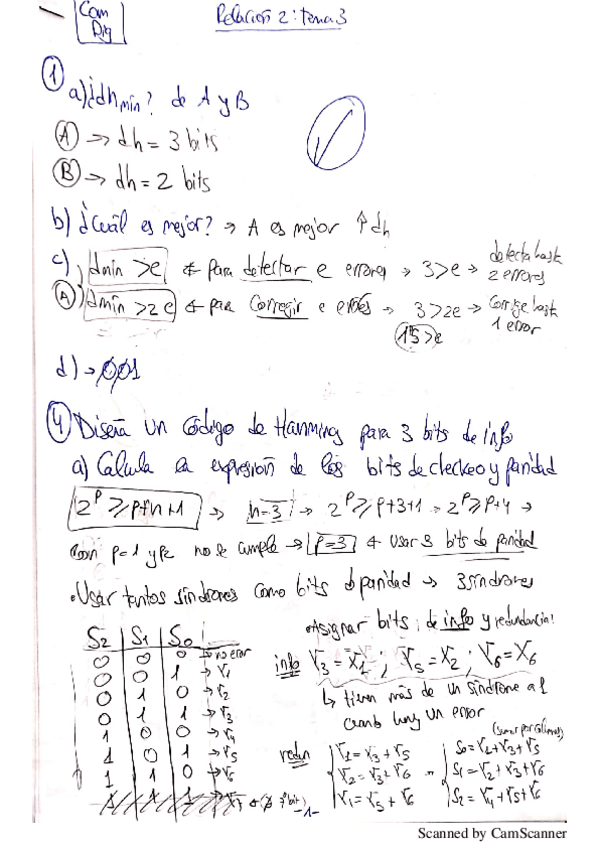 Com Dig
Relación 2: tema 3
① a) ¿dhmin? de A y B
Ⓐ → dh = 3 bits
Ⓑ → dh = 2 bits
b) ¿Cuál es mejor? → A es mejor ↑dh
c) dmin > e ← para detectar e errores → 3>e → detecta hasta 2 errores
Ⓐ dmin > 2e ← para corregir e errores → 3>2e → Corrige hasta 1 error
1'5>e
d) → 001
④ Diseña un código de Hamming para 3 bits de info
a) Calcula la expresión de los bits de checkeo y paridad
2^p ≥ p+n+1 → n=3 → 2^p ≥ p+3+1 → 2^p ≥ p+4 →
Con p=1 y p2 no se cumple → p=3 ← Usar 3 bits de paridad
• Usar tantos síndromes como bits d paridad → 3 síndromes
• Asignar bits de info y redundancia:
S2 S1 S0
0 0 0 → no error
0 0 1 → r1
0 1 0 → r2
0 1 1 → r3
1 0 0 → r4
1 0 1 → r5
1 1 0 → r6
info r3 = X1; r5 = X2; r6 = X6
↳ tienen más de un síndrome a 1
cuando hay un error
(sumar por columnas)
redun r1 = r3 + r5
r2 = r3 + r6
r1 = r5 + r6
S0 = r1 + r3 + r5
S1 = r2 + r3 + r6
S2 = r4 + r5 + r6
-1-
Scanned by CamScanner